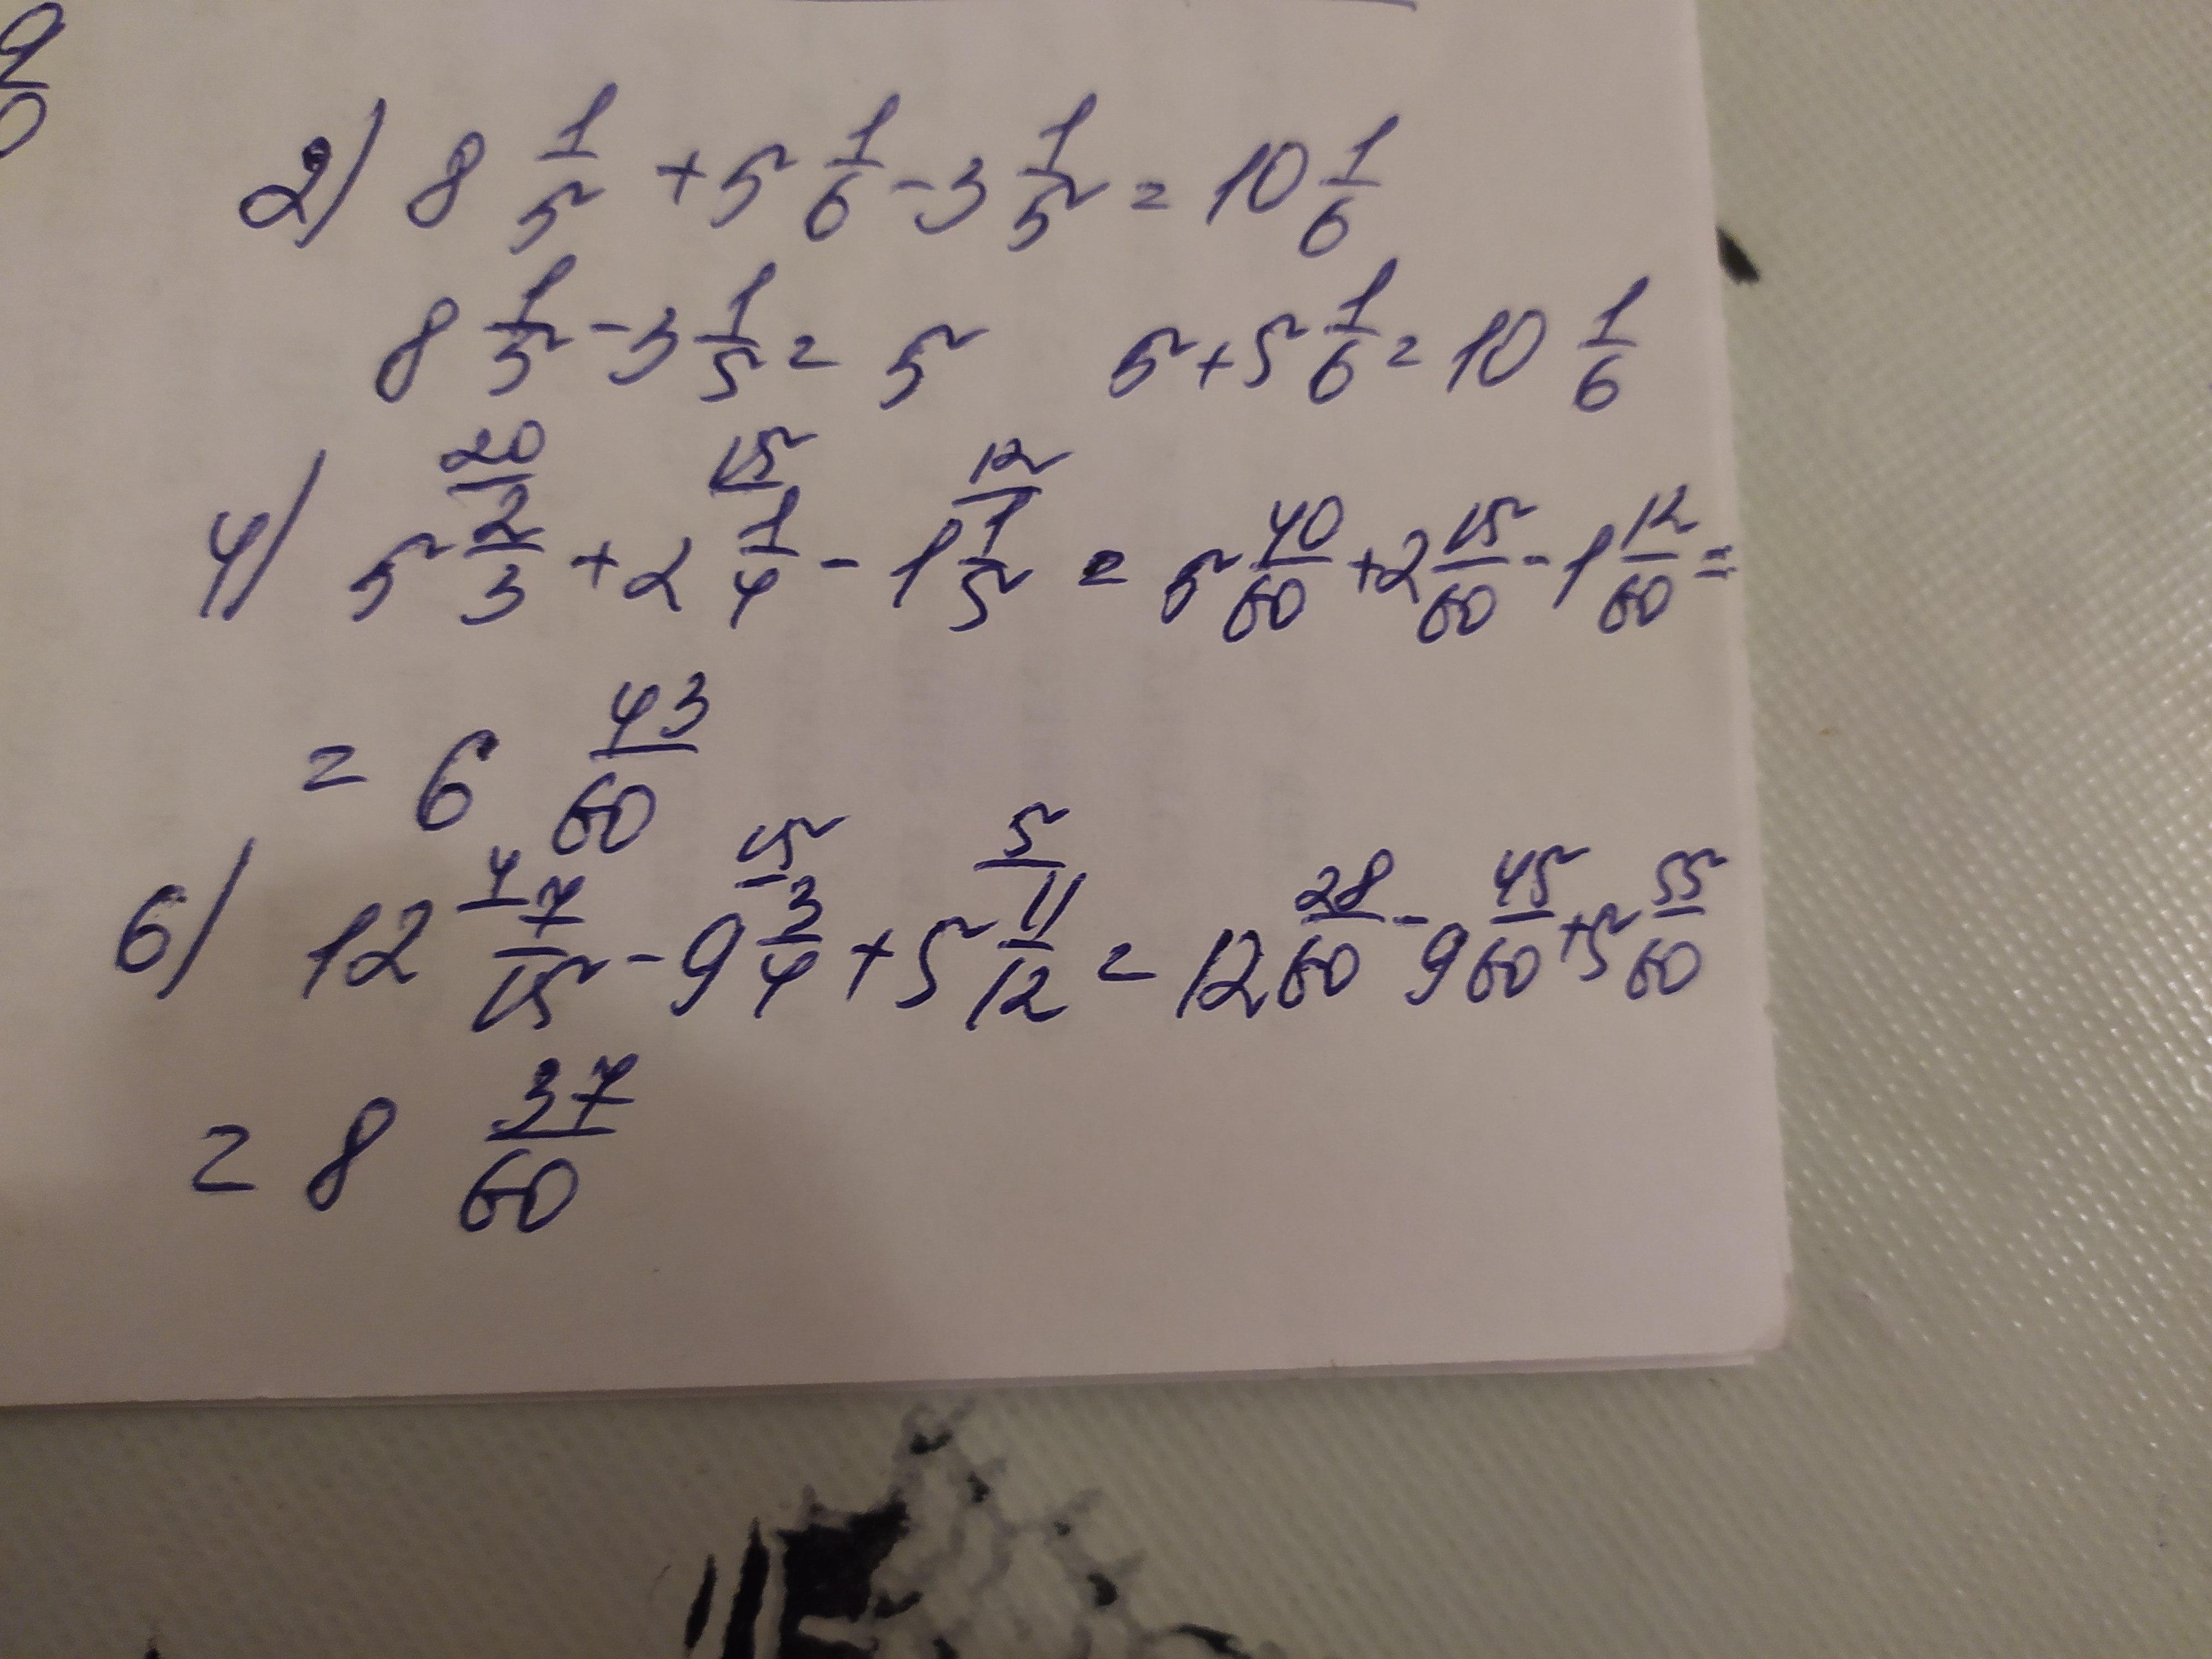 9/0
2) 8 1/5 + 5 1/6 - 3 1/5 = 10 1/6
8 1/5 - 3 1/5 = 5 5 + 5 1/6 = 10 1/6
20 15 12
4) 5 2/3 + 2 1/4 - 1 1/5 = 5 40/60 + 2 15/60 - 1 12/60 =
= 6 43/60
4 15 5
6) 12 7/15 - 9 3/4 + 5 11/12 = 12 28/60 - 9 45/60 + 5 55/60
= 8 37/60